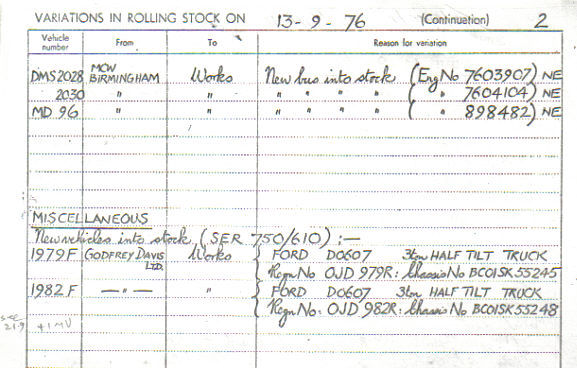 VARIATIONS IN ROLLING STOCK ON 13-9-76 (Continuation) 2
Vehicle number From To Reason for variation
DMS2028 MCW BIRMINGHAM Works New bus into stock (Eng No 7603907) NE
2030 " " " " " " ( " 7604104) NE
MD 96 " " " " " " ( " 898482) NE
MISCELLANEOUS
New vehicles into stock (SER 750/610) :—
1979F GODFREY DAVIS LTD. Works } FORD D0607 3ton HALF TILT TRUCK
Regn No OJD 979R: Chassis No BC01SK55245
1982F —"— " } FORD D0607 3ton HALF TILT TRUCK
Regn No: OJD 982R: Chassis No BC01SK55248
see
21.9 +1MU